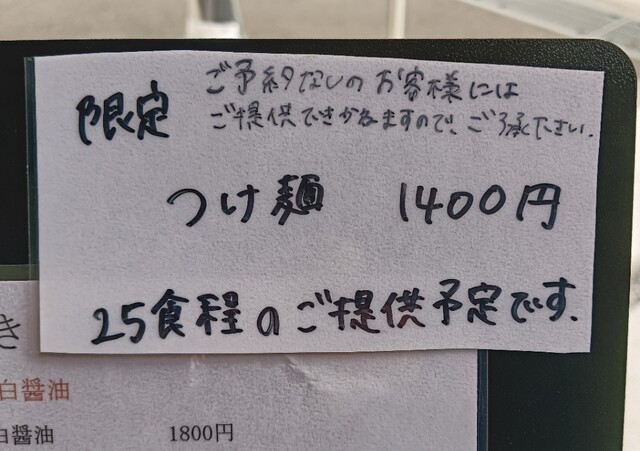 限定
ご予約なしのお客様には
ご提供できかねますので、ご了承下さい.
つけ麺 1400円
25食程のご提供予定です.
き
白醤油
白醤油 1800円